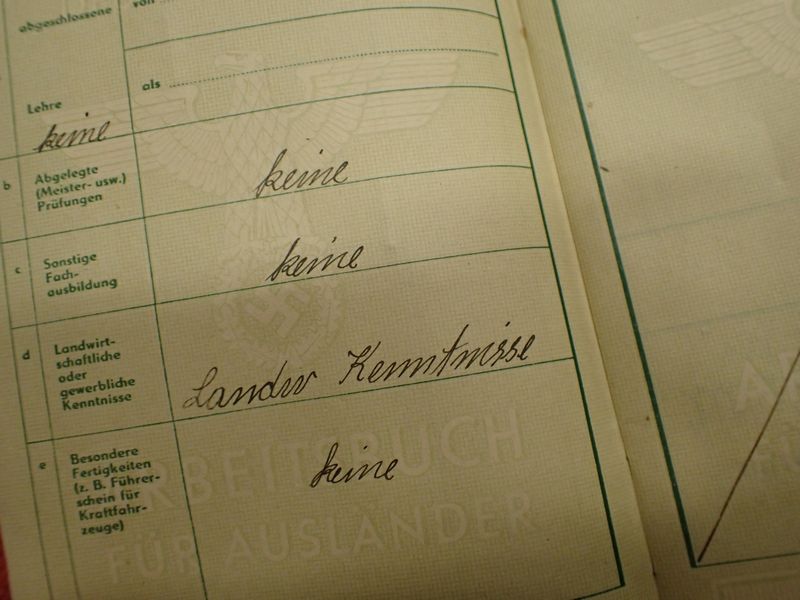 abgeschlossene
von
als
Lehre
keine
b Abgelegte
(Meister- usw.)
Prüfungen
keine
c Sonstige
Fach-
ausbildung
keine
d Landwirt-
schaftliche
oder
gewerbliche
Kenntnisse
Landw Kenntnisse
e Besondere
Fertigkeiten
(z. B. Führer-
schein für
Kraftfahr-
zeuge)
keine
ARBEITSBUCH
FÜR AUSLÄNDER